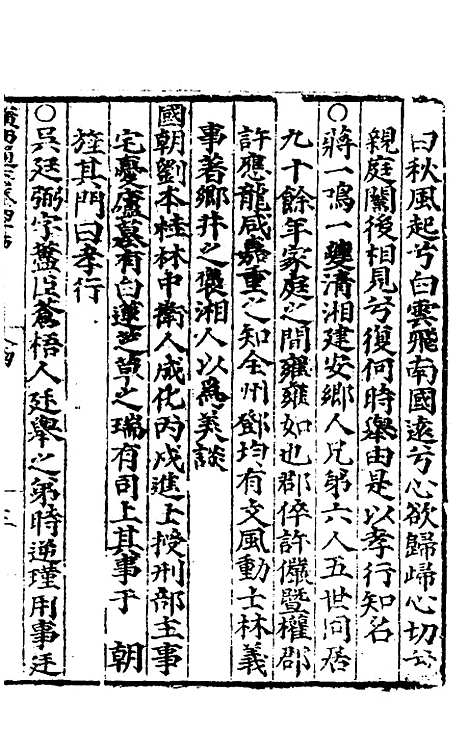 曰秋風起兮白雲飛南國遠兮心欲歸歸心切兮
親庭闊後相見兮復何時舉由是以孝行知名
○蔣一鳴一夔清湘建安鄉人兄弟六人五世同居
九十餘年家庭之間雍雍如也郡倅許儼暨權郡
許應龍咸嘉重之知全州鄧均有文風動士林義
事著鄉井之褒湘人以爲美談
國朝劉本桂林中衛人成化丙戌進士授刑部主事
宅憂廬墓有白蓮芝草之瑞有司上其事于　朝
旌其門曰孝行
○吳廷弼字蓋臣蒼梧人廷舉之弟時逆瑾用事廷